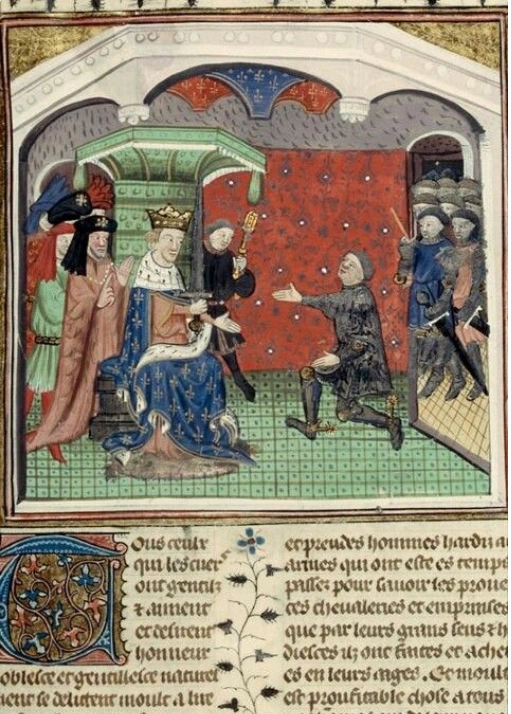 Tous ceulx
qui les cuers
ont gentilz
⁊ aiment
et delitent
honneur
oblesce et gentillesce naturel
ment se delitent moult a lire
et preudes hommes hardiz
armes qui ont este es temps
passez pour savoir les proue
ces chevaleries et emprinses
que par leurs grans sens ⁊ h
diesces ilz ont faites et ache
es en leurs aages. Et moult
est prouffitable chose a tous